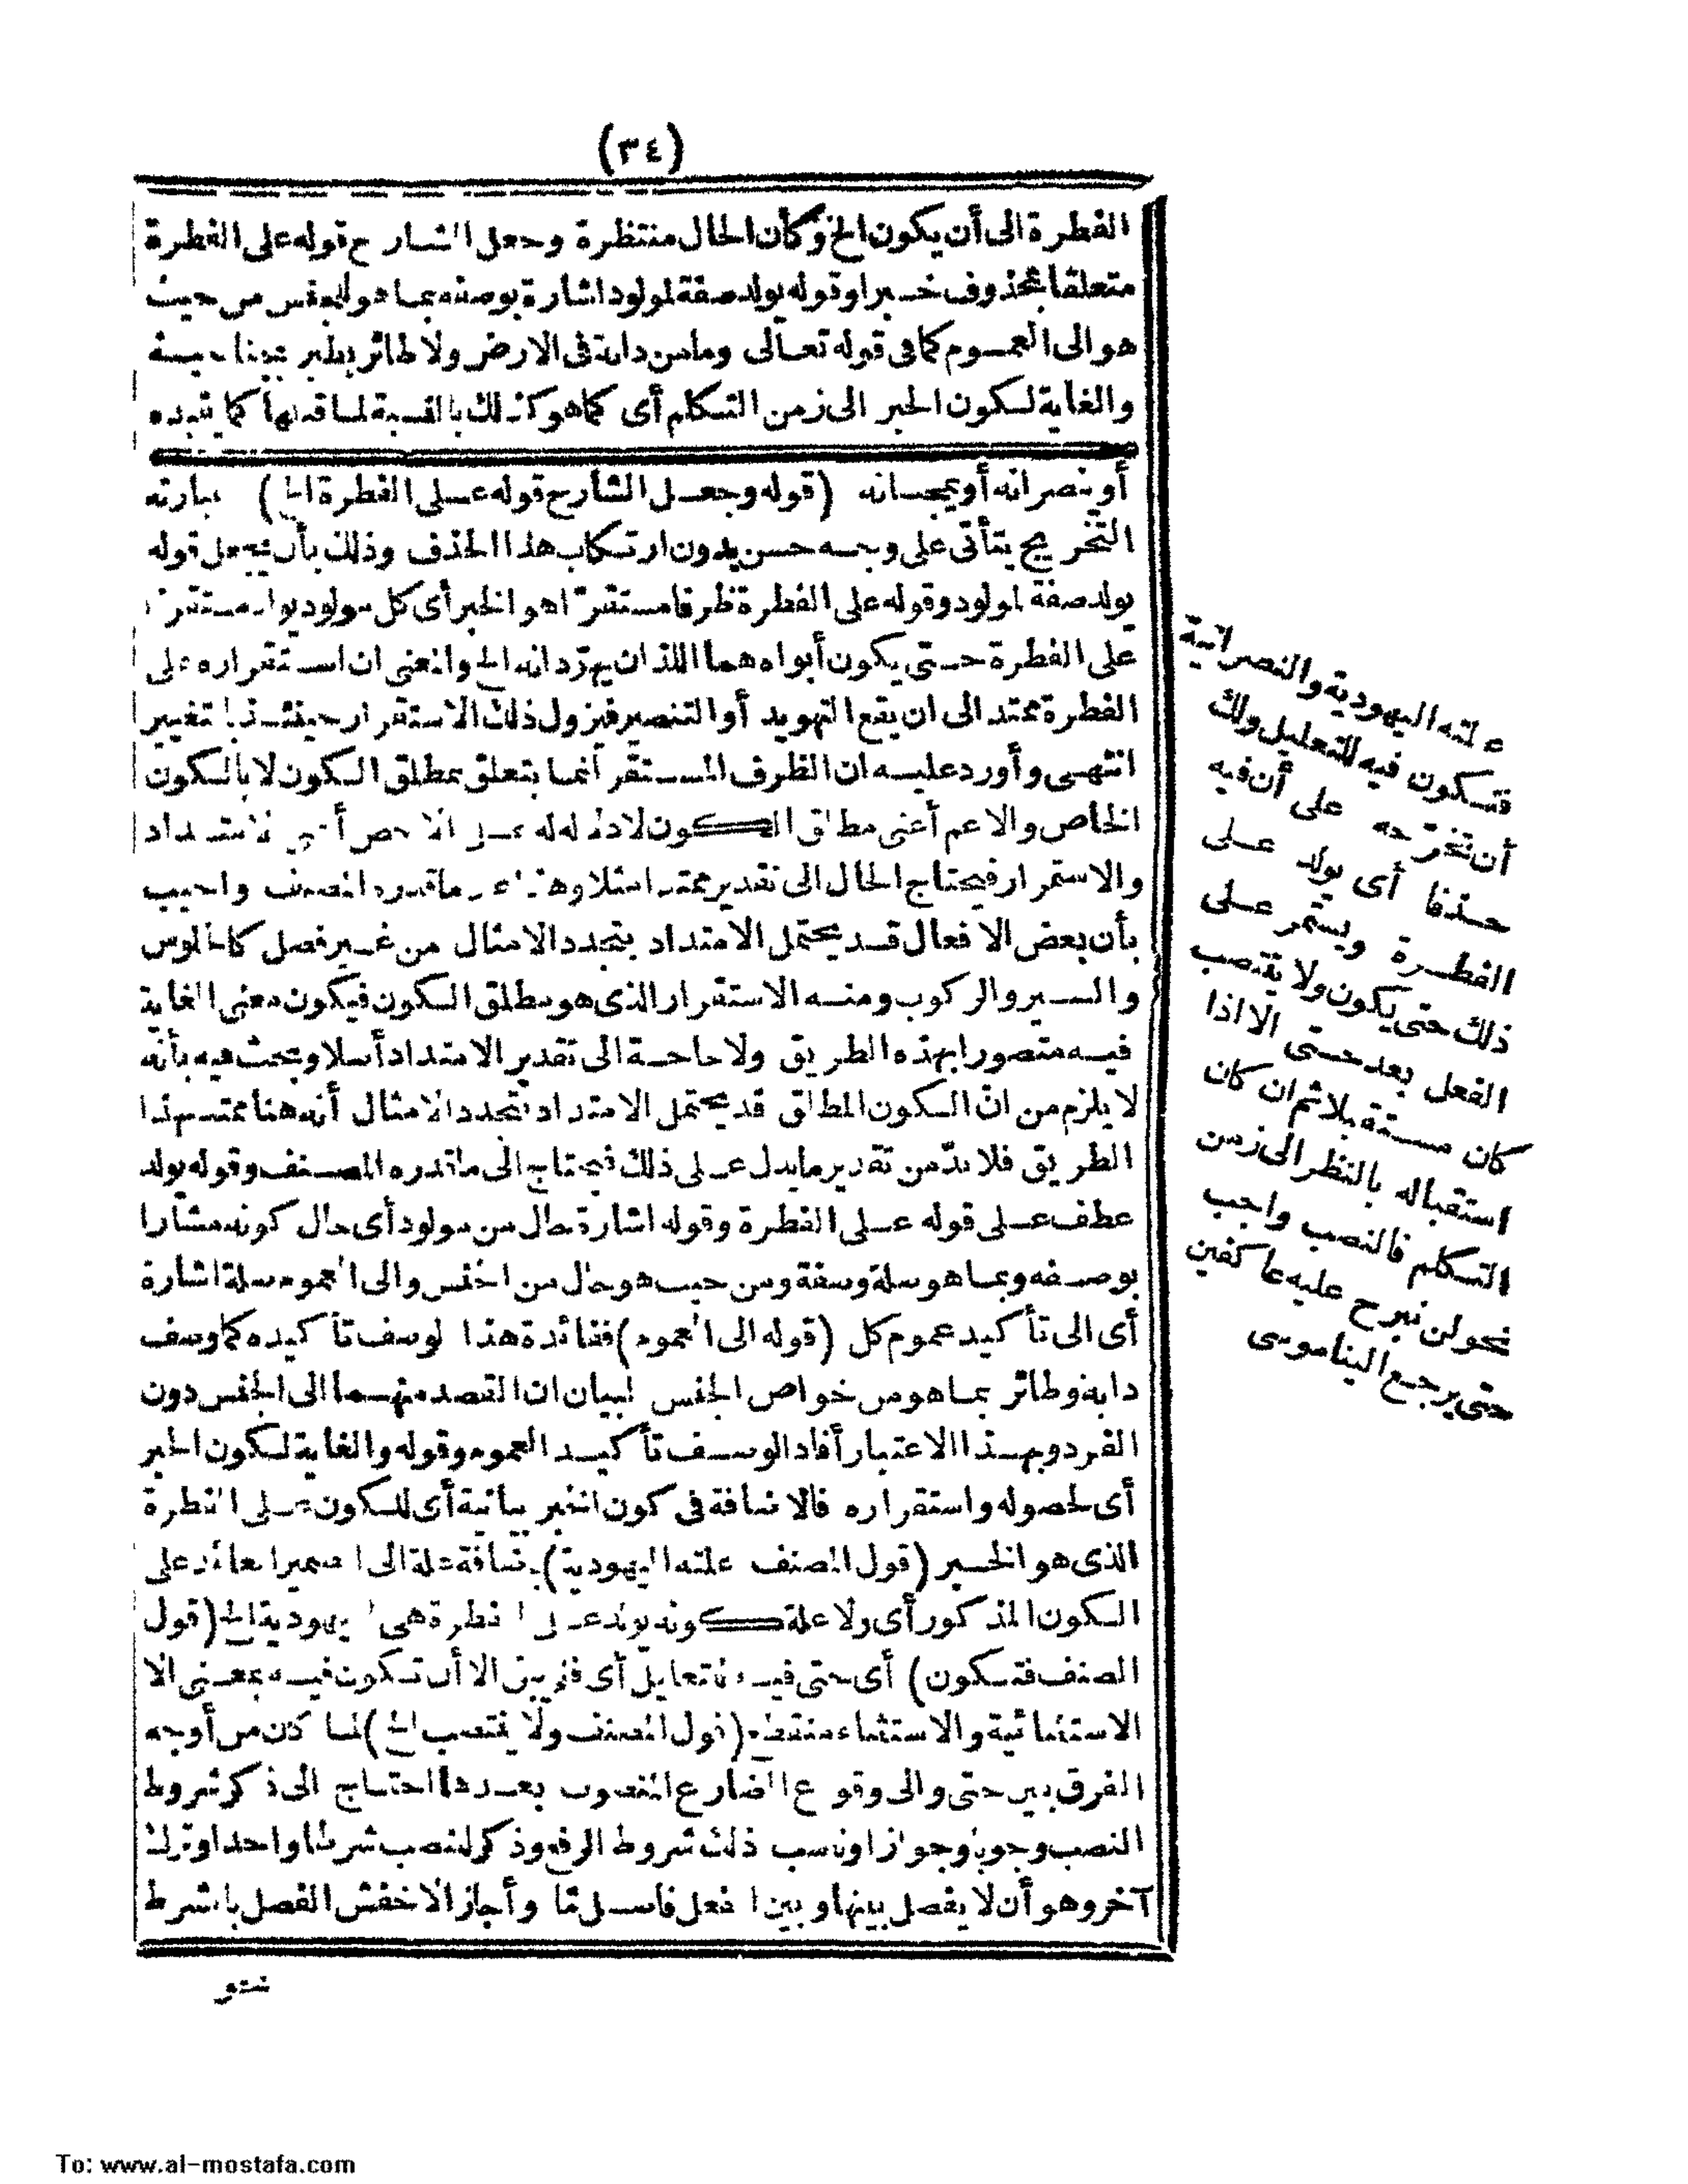 (٣٤)
الفطرة الى أن يكون الخ وكأن الحال منتظرة وجعل الشارح قوله على الفطرة
متعلقا بمحذوف خبرا وقوله يولد صفة لمولود اشارة بوصفه بما هو للجنس من حيث
هو الى العموم كما فى قوله تعالى وما من دابة فى الارض ولا طائر يطير بجناحيه
والغاية لكون الخبر الى زمن التكلم أى كما هو كذلك بالنسبة لما قبلها كما
أو ينصرانه أو يمجسانه (قوله وجعل الشارح قوله على الفطرة الخ) عبارته
التخريج يتأتى على وجه حسن بدون ارتكاب هذا الحذف وذلك بأن يجعل قوله
يولد صفة لمولود وقوله على الفطرة ظرفا مستقرّا هو الخبر أى كل مولود يولد مستقرّ
على الفطرة حتى يكون أبواه هما اللذان يهوّدانه الخ والمعنى ان استقراره على
الفطرة ممتد الى ان يقع التهويد أو التنصير فيزول ذلك الاستقرار حينئذ بالتغيير
انتهى وأورد عليه ان الظرف المستقر انما يتعلق بمطلق الكون لا بالكون
الخاص والاعم أعنى مطلق الكون لا دلالة له على الاخص أعنى الامتداد
والاستمرار فيحتاج الحال الى تقدير ممتد امثلا وهذا ما قدره المصنف واجيب
بأن بعض الافعال قد يحتمل الامتداد بتجدد الامثال من غير فصل كالجلوس
والسير والركوب ومنه الاستقرار الذى هو مطلق الكون فيكون معنى الغاية
فيه متصورا بهذه الطريق ولا حاجة الى تقدير الامتداد أصلا وبحث فيه بأنه
لا يلزم من انّ الكون المطلق قد يحتمل الامتداد بتجدد الامثال أنه هنا ممتد بهذا
الطريق فلا بدّ من تقدير ما يدل على ذلك فيحتاج الى ما قدره المصنف وقوله يولد
عطف على قوله على الفطرة وقوله اشارة حال من مولود أى حال كونه مشارا
بوصفه وبما هو صلة وصفة ومن حيث هو حال من الجنس والى العموم صلة اشارة
أى الى تأكيد عموم كل (قوله الى العموم) ففائدة هذا الوصف تأكيده كما وصف
دابة وطائر بما هو من خواص الجنس لبيان ان القصد منهما الى الجنس دون
الفرد وبهذا الاعتبار أفاد الوصف تأكيد العموم وقوله والغاية لكون الخبر
أى لحصوله واستقراره فالاضافة فى كون الخبر بيانية أى للكون على الفطرة
الذى هو الخبر (قول المصنف علته اليهودية) باضافة علة الى الضمير العائد على
الكون المذكور أى ولا علة كونه يولد على الفطرة هى اليهودية الخ (قول
المصنف فتكون) أى حتى فيه للتعليل أى فلم يبق الا أن تكون فيه بمعنى الا
الاستثنائية والاستثناء منقطع (قول المصنف ولا ينتصب الخ) لما كان من أوجه
الفرق بين حتى والى وقوع المضارع المنصوب بعدها احتاج الى ذكر شروط
النصب وجوبا وجوازا وناسب ذلك شروط الرفع وذكر للنصب شرطا واحدا وترك
آخر وهو أن لا يفصل بينها وبين الفعل فاصل مّا وأجاز الاخفش الفصل بالشرط
نحو
علته اليهودية والنصرانية
فتكون فيه للتعليل ولك
أن تخرّجه على أن فيه
حذفا أى يولد على
الفطرة ويستمر على
ذلك حتى يكون ولا ينتصب
الفعل بعد حتى الا اذا
كان مستقبلا ثم ان كان
استقباله بالنظر الى زمن
التكلم فالنصب واجب
نحو لن نبرح عليه عاكفين
حتى يرجع الينا موسى
To: www.al-mostafa.com